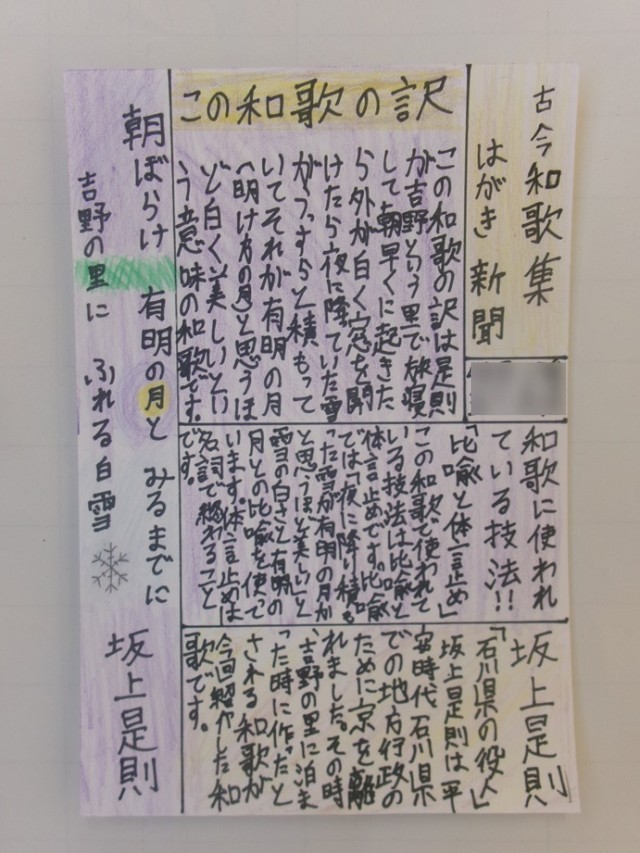 古今和歌集
はがき新聞
この和歌の訳
この和歌の訳は是則
が吉野という里で旅寝
して朝早くに起きた
ら外が白く窓を開
けたら夜に降っていた雪
がうっすらと積もって
いてそれが有明の月
(明け方の月)と思うほ
ど白く美しいとい
う意味の和歌です。
和歌に使われ
ている技法!!
「比喩と体言止め」
この和歌で使われて
いる技法は比喩と
体言止めです。比喩
では「夜に降り積も
った雪が有明の月か
と思うほど美しい」と
雪の白さと有明の
月との比喩を使って
います。体言止めは
名詞で終わること
です。
坂上是則
「石川県の役人」
坂上是則は平
安時代石川県
での地方行政の
ために京を離
れました。その時
、吉野の里に泊ま
った時に作ったと
される和歌が
今回紹介した和
歌です。
朝ぼらけ 有明の月と みるまでに
吉野の里に ふれる白雪
坂上是則